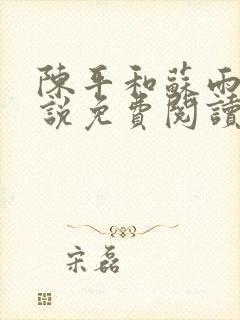 陳平和蘇雨
說免費閱讀
宋磊